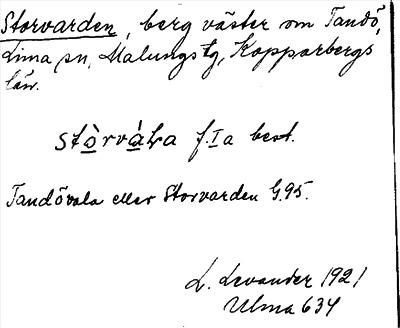 Storvarden, berg väster om Tandö,
Lima sn, Malungs tg, Kopparbergs
län.
stòrvàḷa f.Ia best.
Tandövala eller Storvarden G.95.
L. Levander 1921
Ulma 634